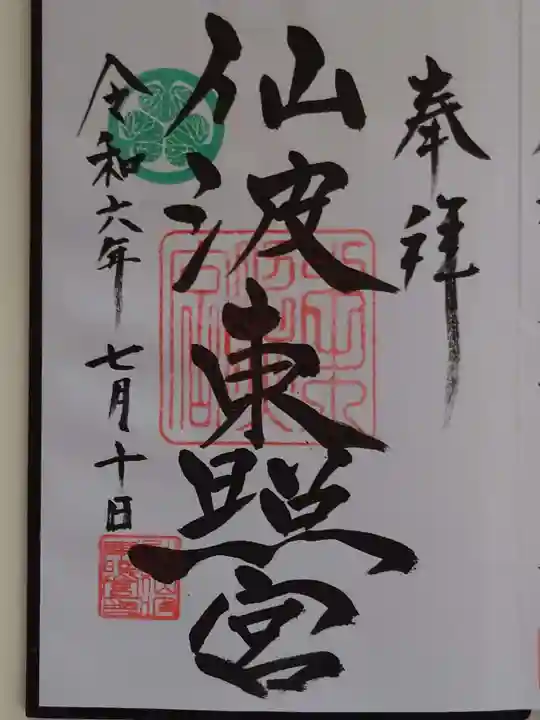 奉拝
仙波東照宮
令和六年七月十日